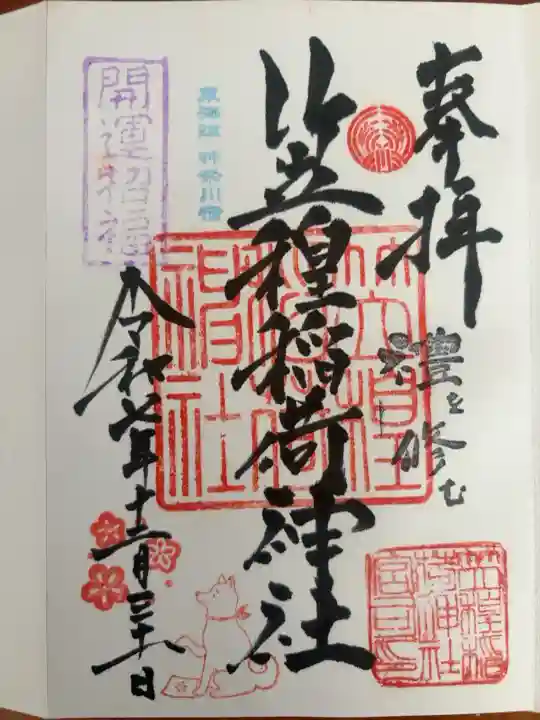 奉拝
禮を修む
笠䅣稲荷神社
東海道 神奈川宿
開運招福
令和七年十二月三十一日
笠䅣稲荷神社
笠䅣稲荷神社宮司之印